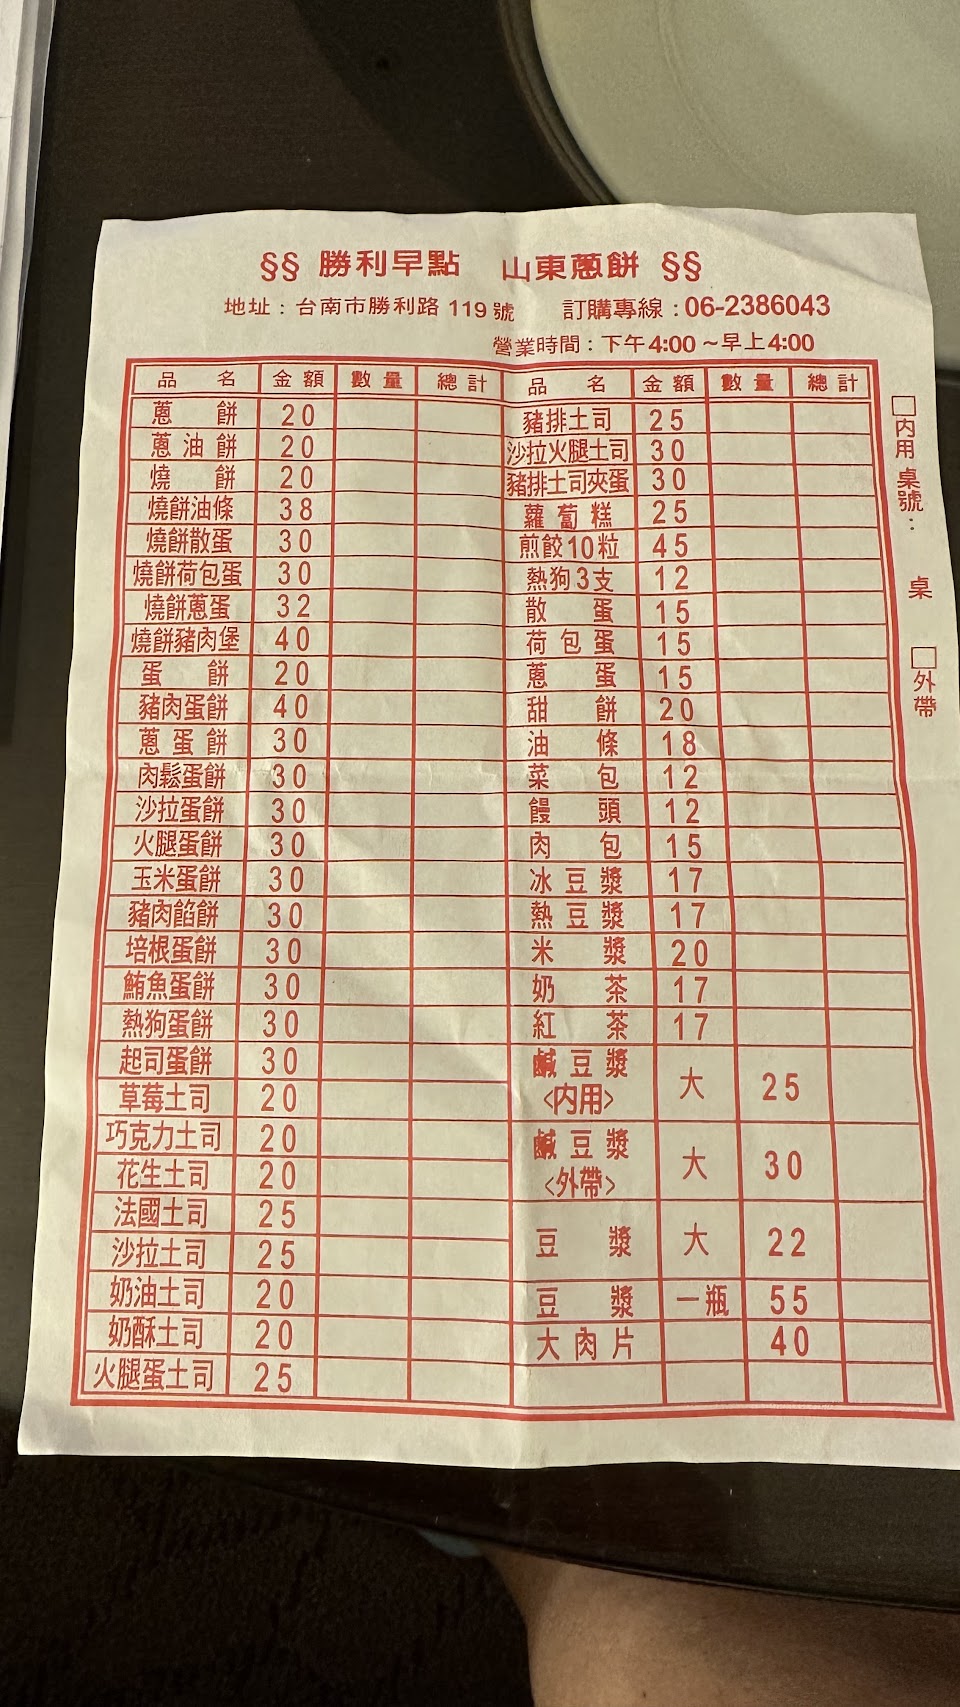 §§ 勝利早點 山東蔥餅 §§
地址：台南市勝利路 119 號 訂購專線：06-2386043
營業時間：下午4:00～早上4:00
品名 金額 數量 總計 品名 金額 數量 總計
蔥餅 20 豬排土司 25
蔥油餅 20 沙拉火腿土司 30
燒餅 20 豬排土司夾蛋 30
燒餅油條 38 蘿蔔糕 25
燒餅散蛋 30 煎餃10粒 45
燒餅荷包蛋 30 熱狗3支 12
燒餅蔥蛋 32 散蛋 15
燒餅豬肉堡 40 荷包蛋 15
蛋餅 20 蔥蛋 15
豬肉蛋餅 40 甜餅 20
蔥蛋餅 30 油條 18
肉鬆蛋餅 30 菜包 12
沙拉蛋餅 30 饅頭 12
火腿蛋餅 30 肉包 15
玉米蛋餅 30 冰豆漿 17
豬肉餡餅 30 熱豆漿 17
培根蛋餅 30 米漿 20
鮪魚蛋餅 30 奶茶 17
熱狗蛋餅 30 紅茶 17
起司蛋餅 30 鹹豆漿<內用> 大 25
草莓土司 20
巧克力土司 20 鹹豆漿<外帶> 大 30
花生土司 20
法國土司 25 豆漿 大 22
沙拉土司 25
奶油土司 20 豆漿 一瓶 55
奶酥土司 20 大肉片 40
火腿蛋土司 25
□內用 桌號： 桌
□外帶